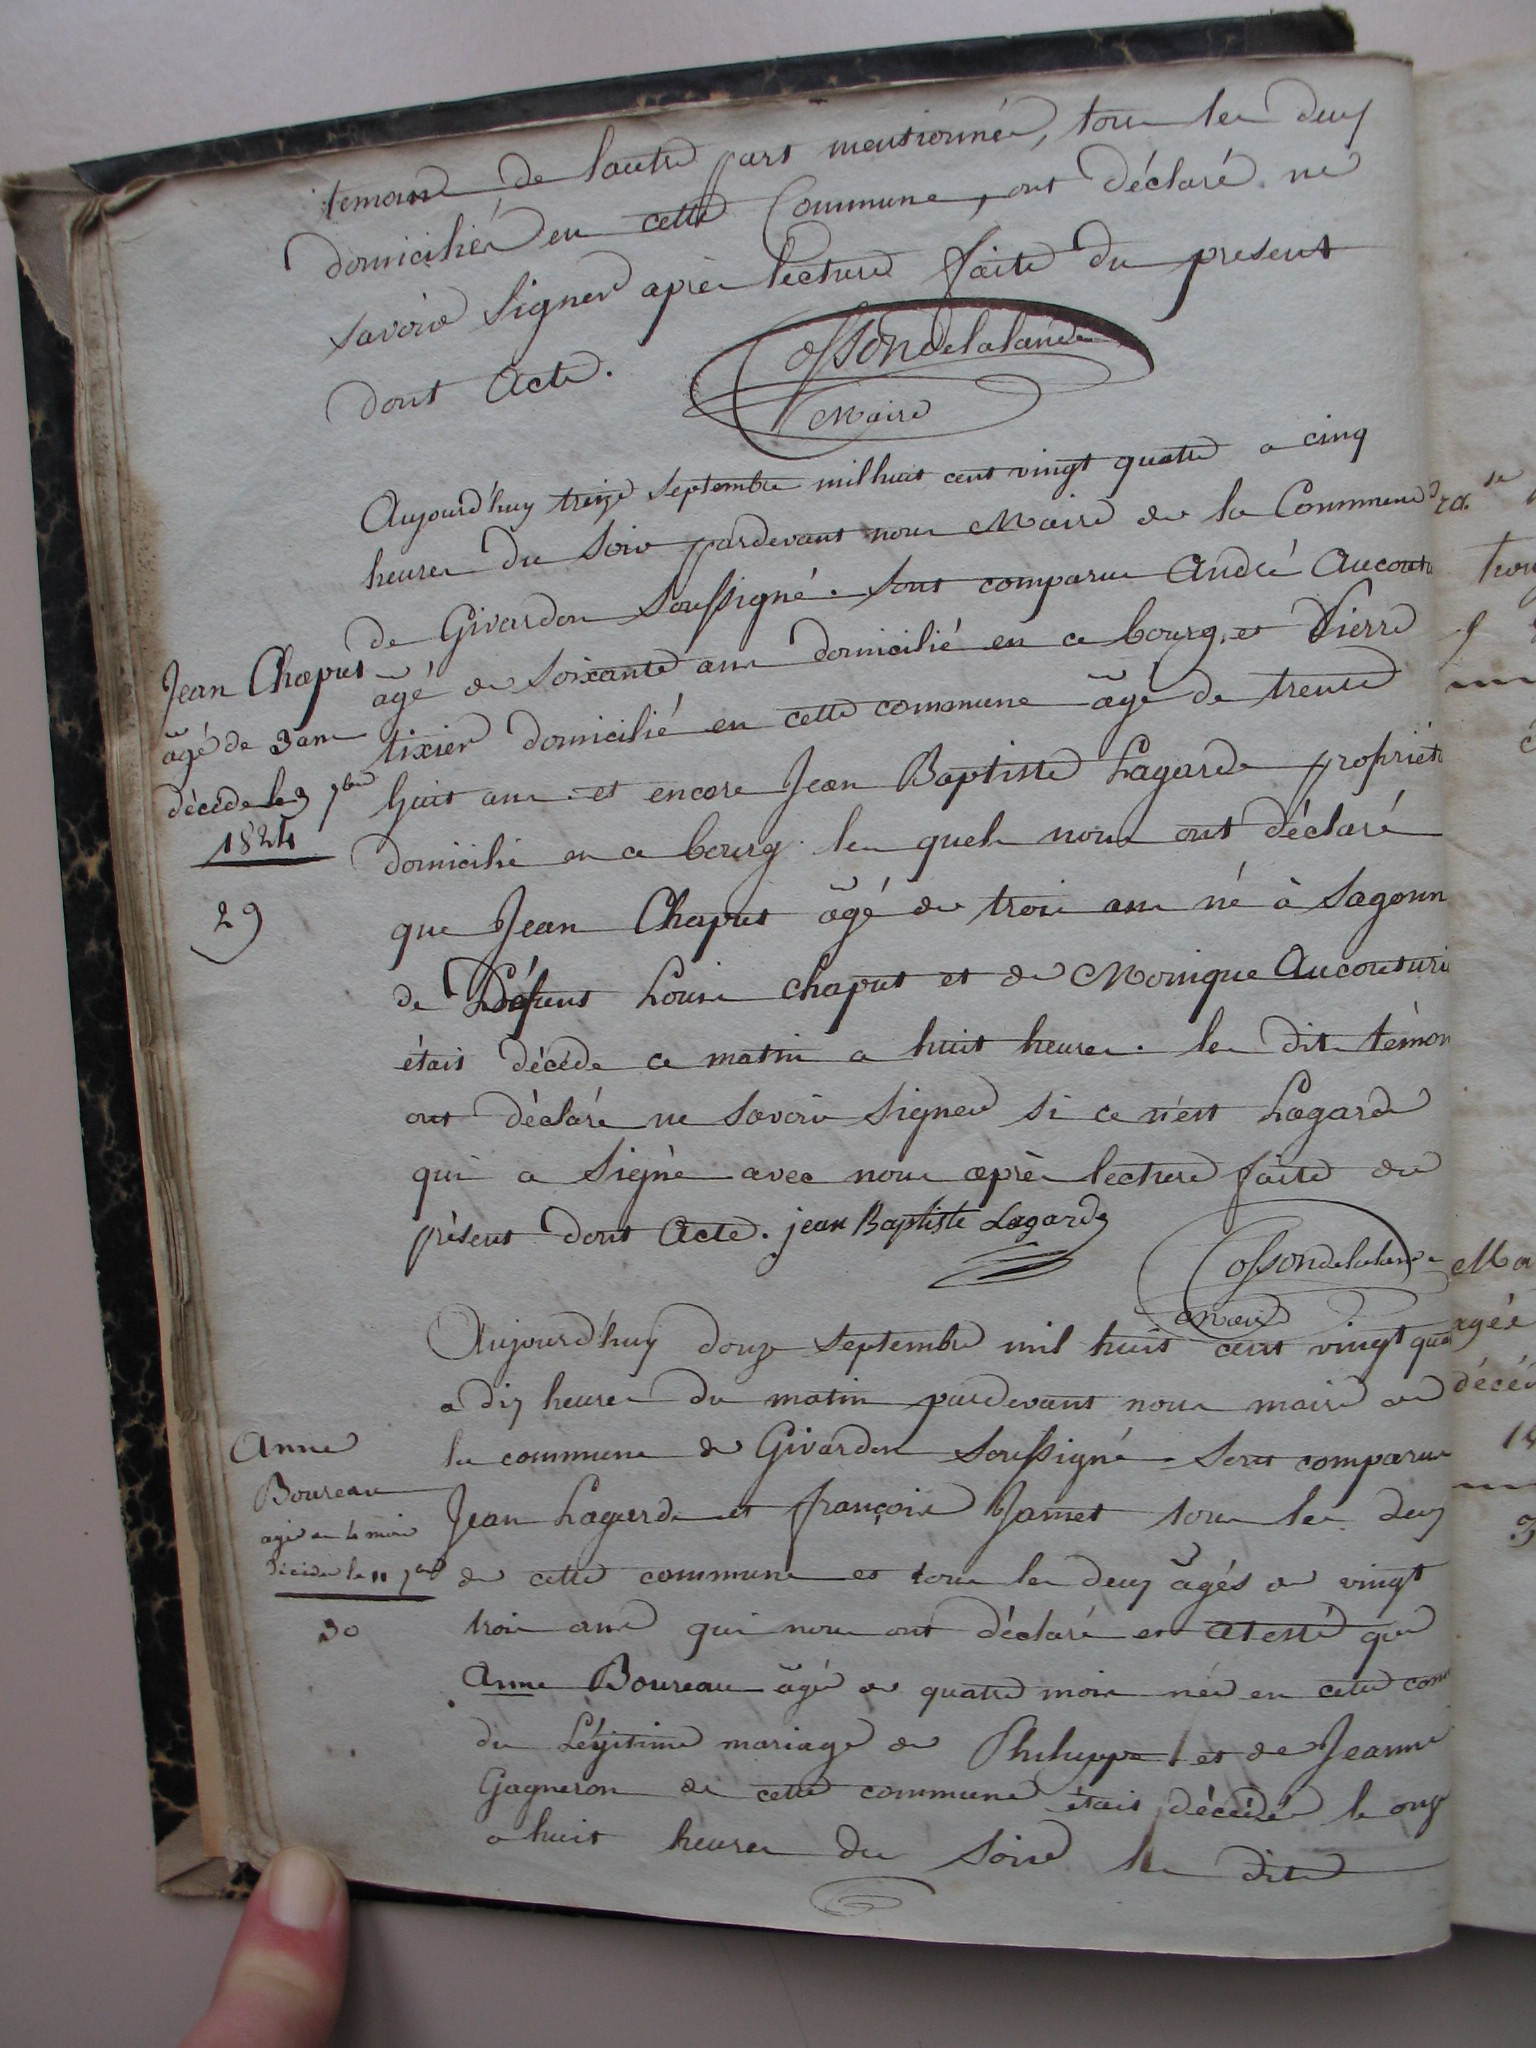 temoins de lautre part mentionnés, tous les deux
domiciliés en cette Commune, ont déclaré ne
savoir signer après lecture faite du present
dont Acte.
Cossondelalande
Maire
Aujourd'huy treize septembre mil huit cent vingt quatre a cinq
heures du soir pardevant nous Maire de la Commune
de Givardon soussigné. sont comparus André Aucoutu
agé de soixante ans domicilié en ce bourg, et Pierre
tixier domicilié en cette commune âgé de trente
huit ans et encore Jean Baptiste Lagarde propriéta
domicilié en ce bourg. les quels nous ont déclaré
que Jean Chaput âgé de trois ans né à Sagonn
de Défunt Louis chaput et de Monique Aucouturi
était décédé ce matin a huit heures. les dits témoi
ont déclaré ne savoir signer si ce n'est Lagarde
qui a signé avec nous après lecture faite du
présent dont Acte. jean Baptiste Lagarde
Cossondelalande
Maire
Jean Chaput
âgé de 3 ans
décédé le 7bre
1824
29
Aujourd'huy douze septembre mil huit cent vingt qua
a dix heures du matin pardevant nous maire de
la commune de Givardon soussigné sont comparus
Jean Lagarde et françois Jamet tous les deux
de cette commune et tous les deux âgés de vingt
trois ans qui nous ont déclaré et atesté que
Anne Boureau âgé de quatre mois née en cette com
du Légitime mariage de Philuppe et de Jeanne
Gagneron de cette commune était décédée le onze
a huit heures du soire les dits
Anne
Boureau
agée de 4 mois
décédée le 11 7bre
30